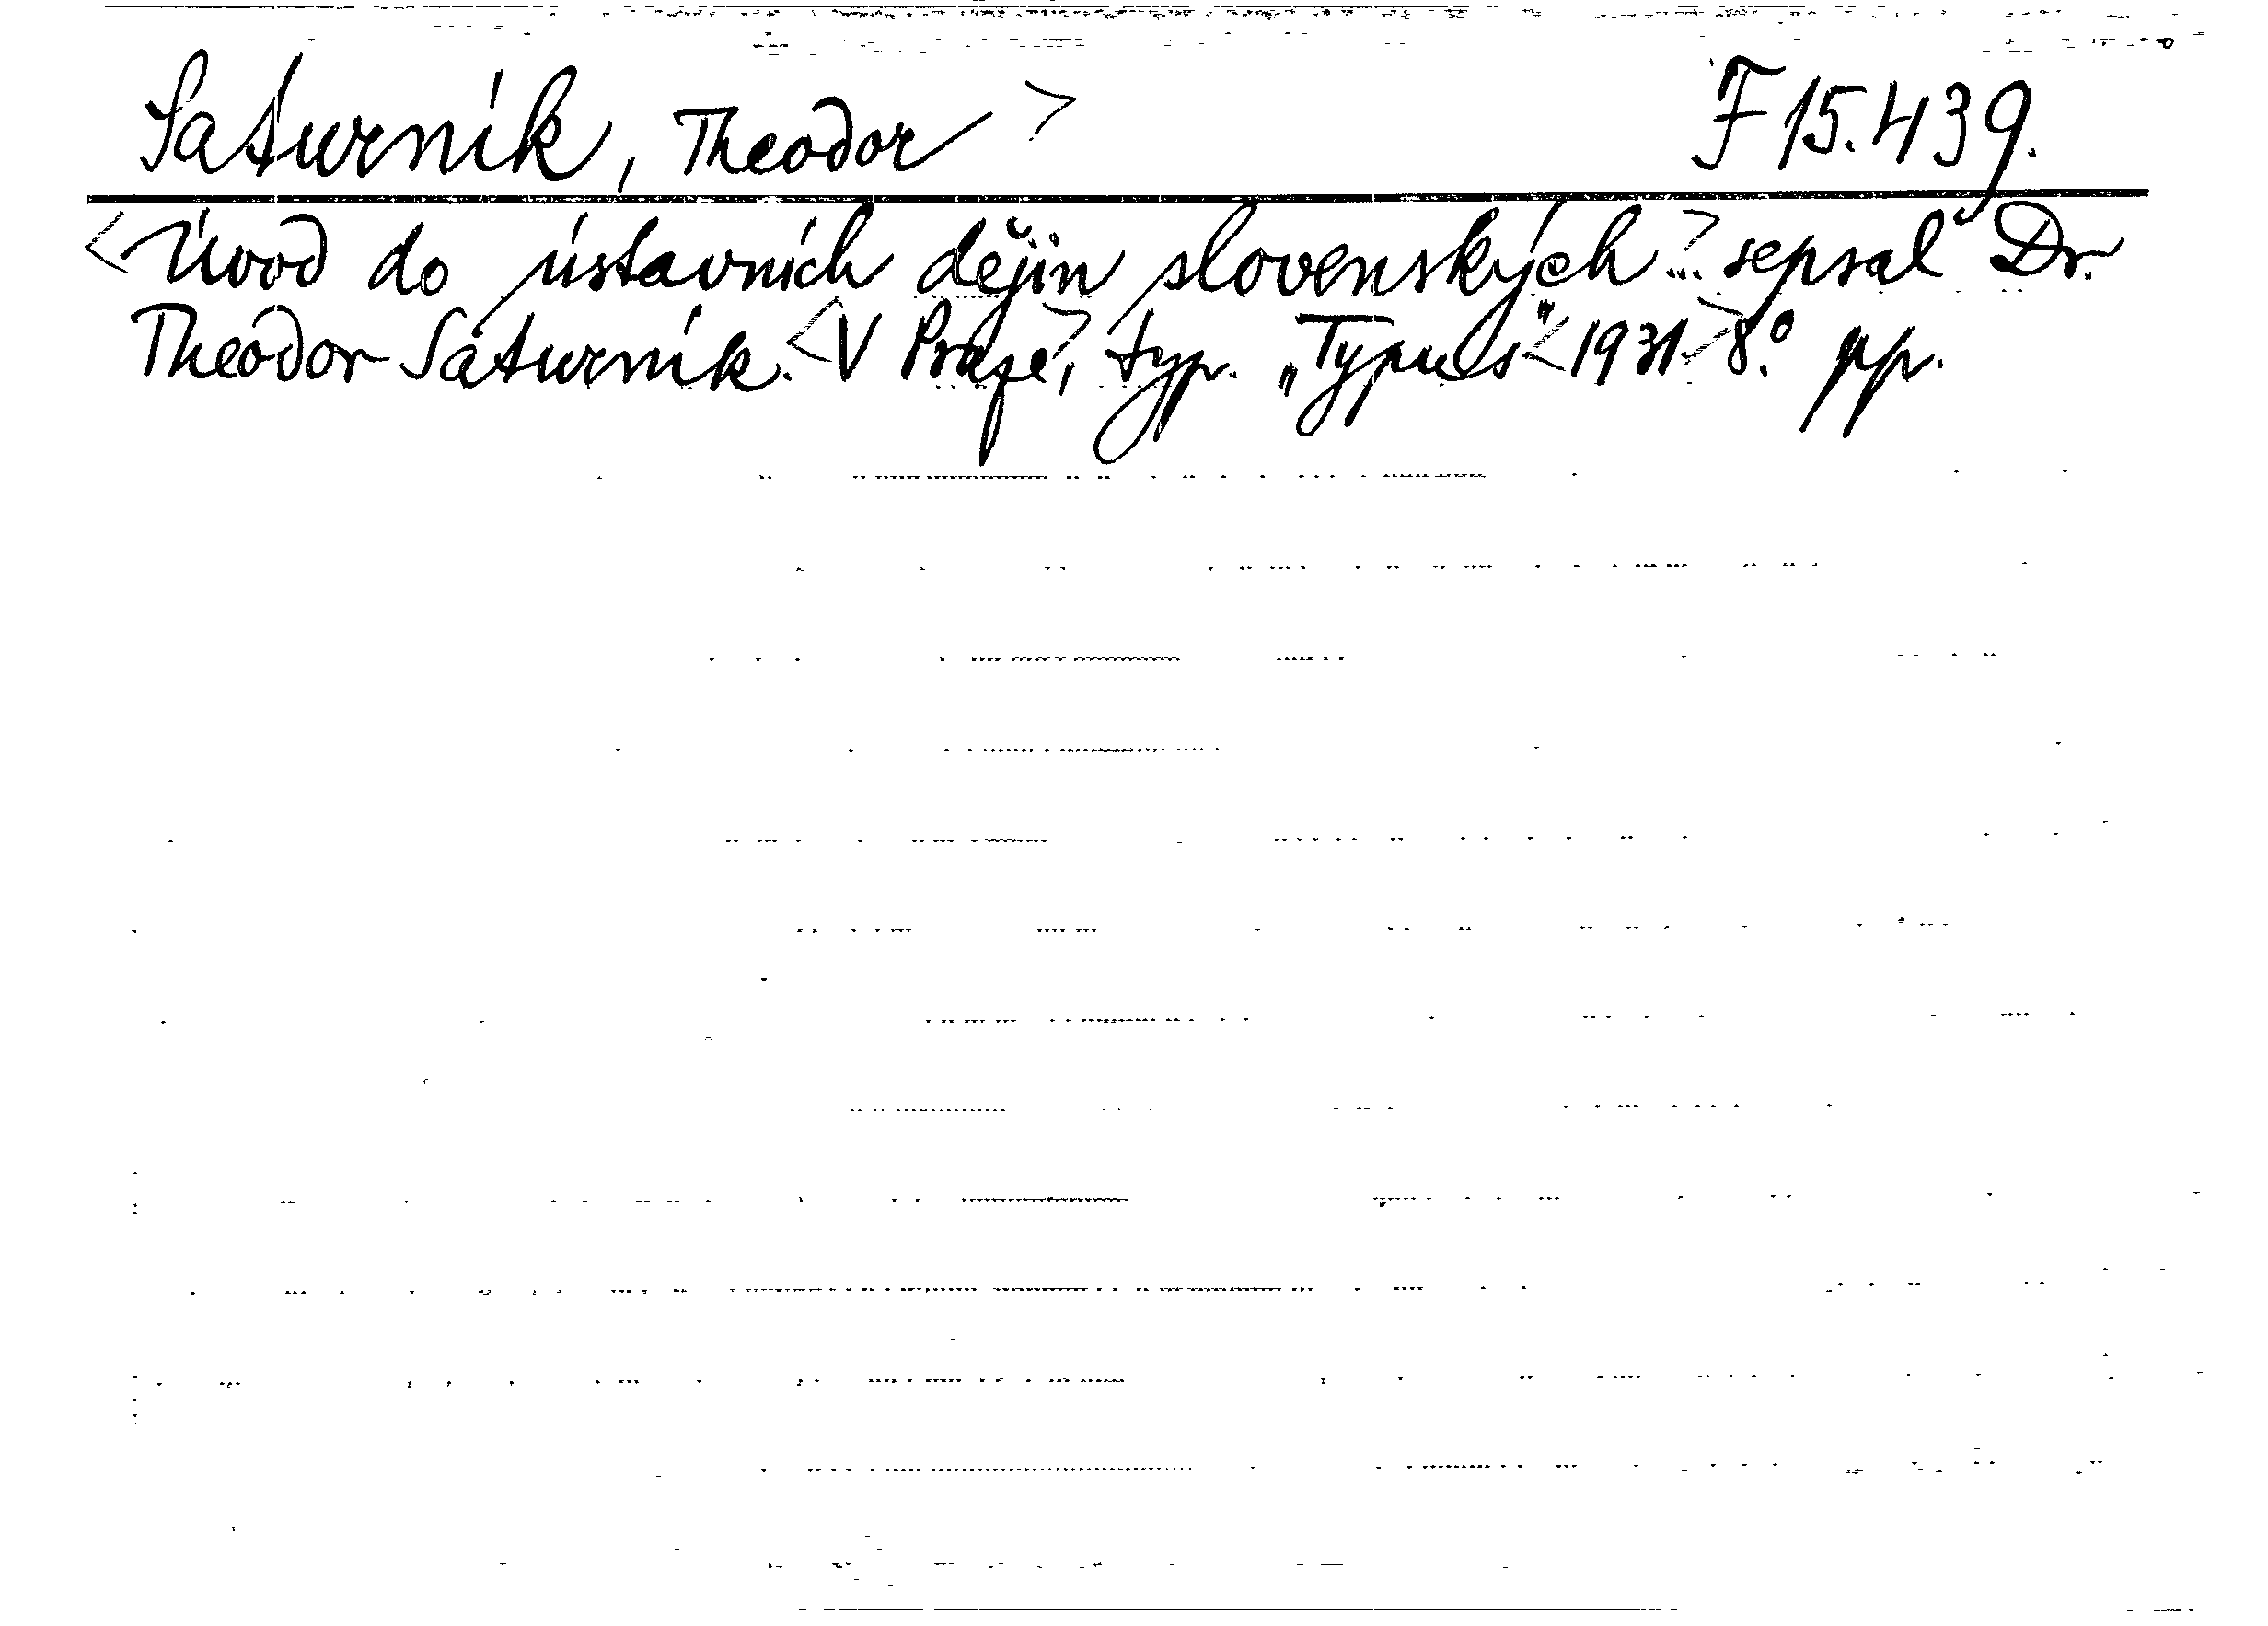 Saturník, Theodor > F 15.439.
<Úvod do ústavních dějin slovenských>... sepsal Dr.
Theodor Saturník. <V Praze>, typ. „Typus" <1931> 8.° pp.